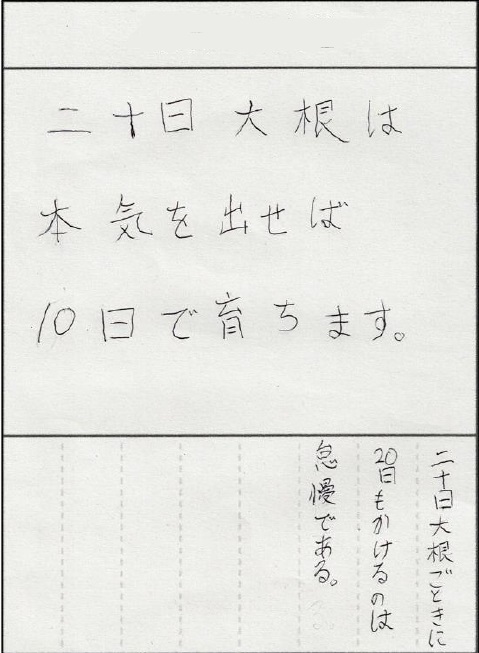 二十日大根は
本気を出せば
10日で育ちます。
二十日大根ごときに
20日もかけるのは
怠慢である。